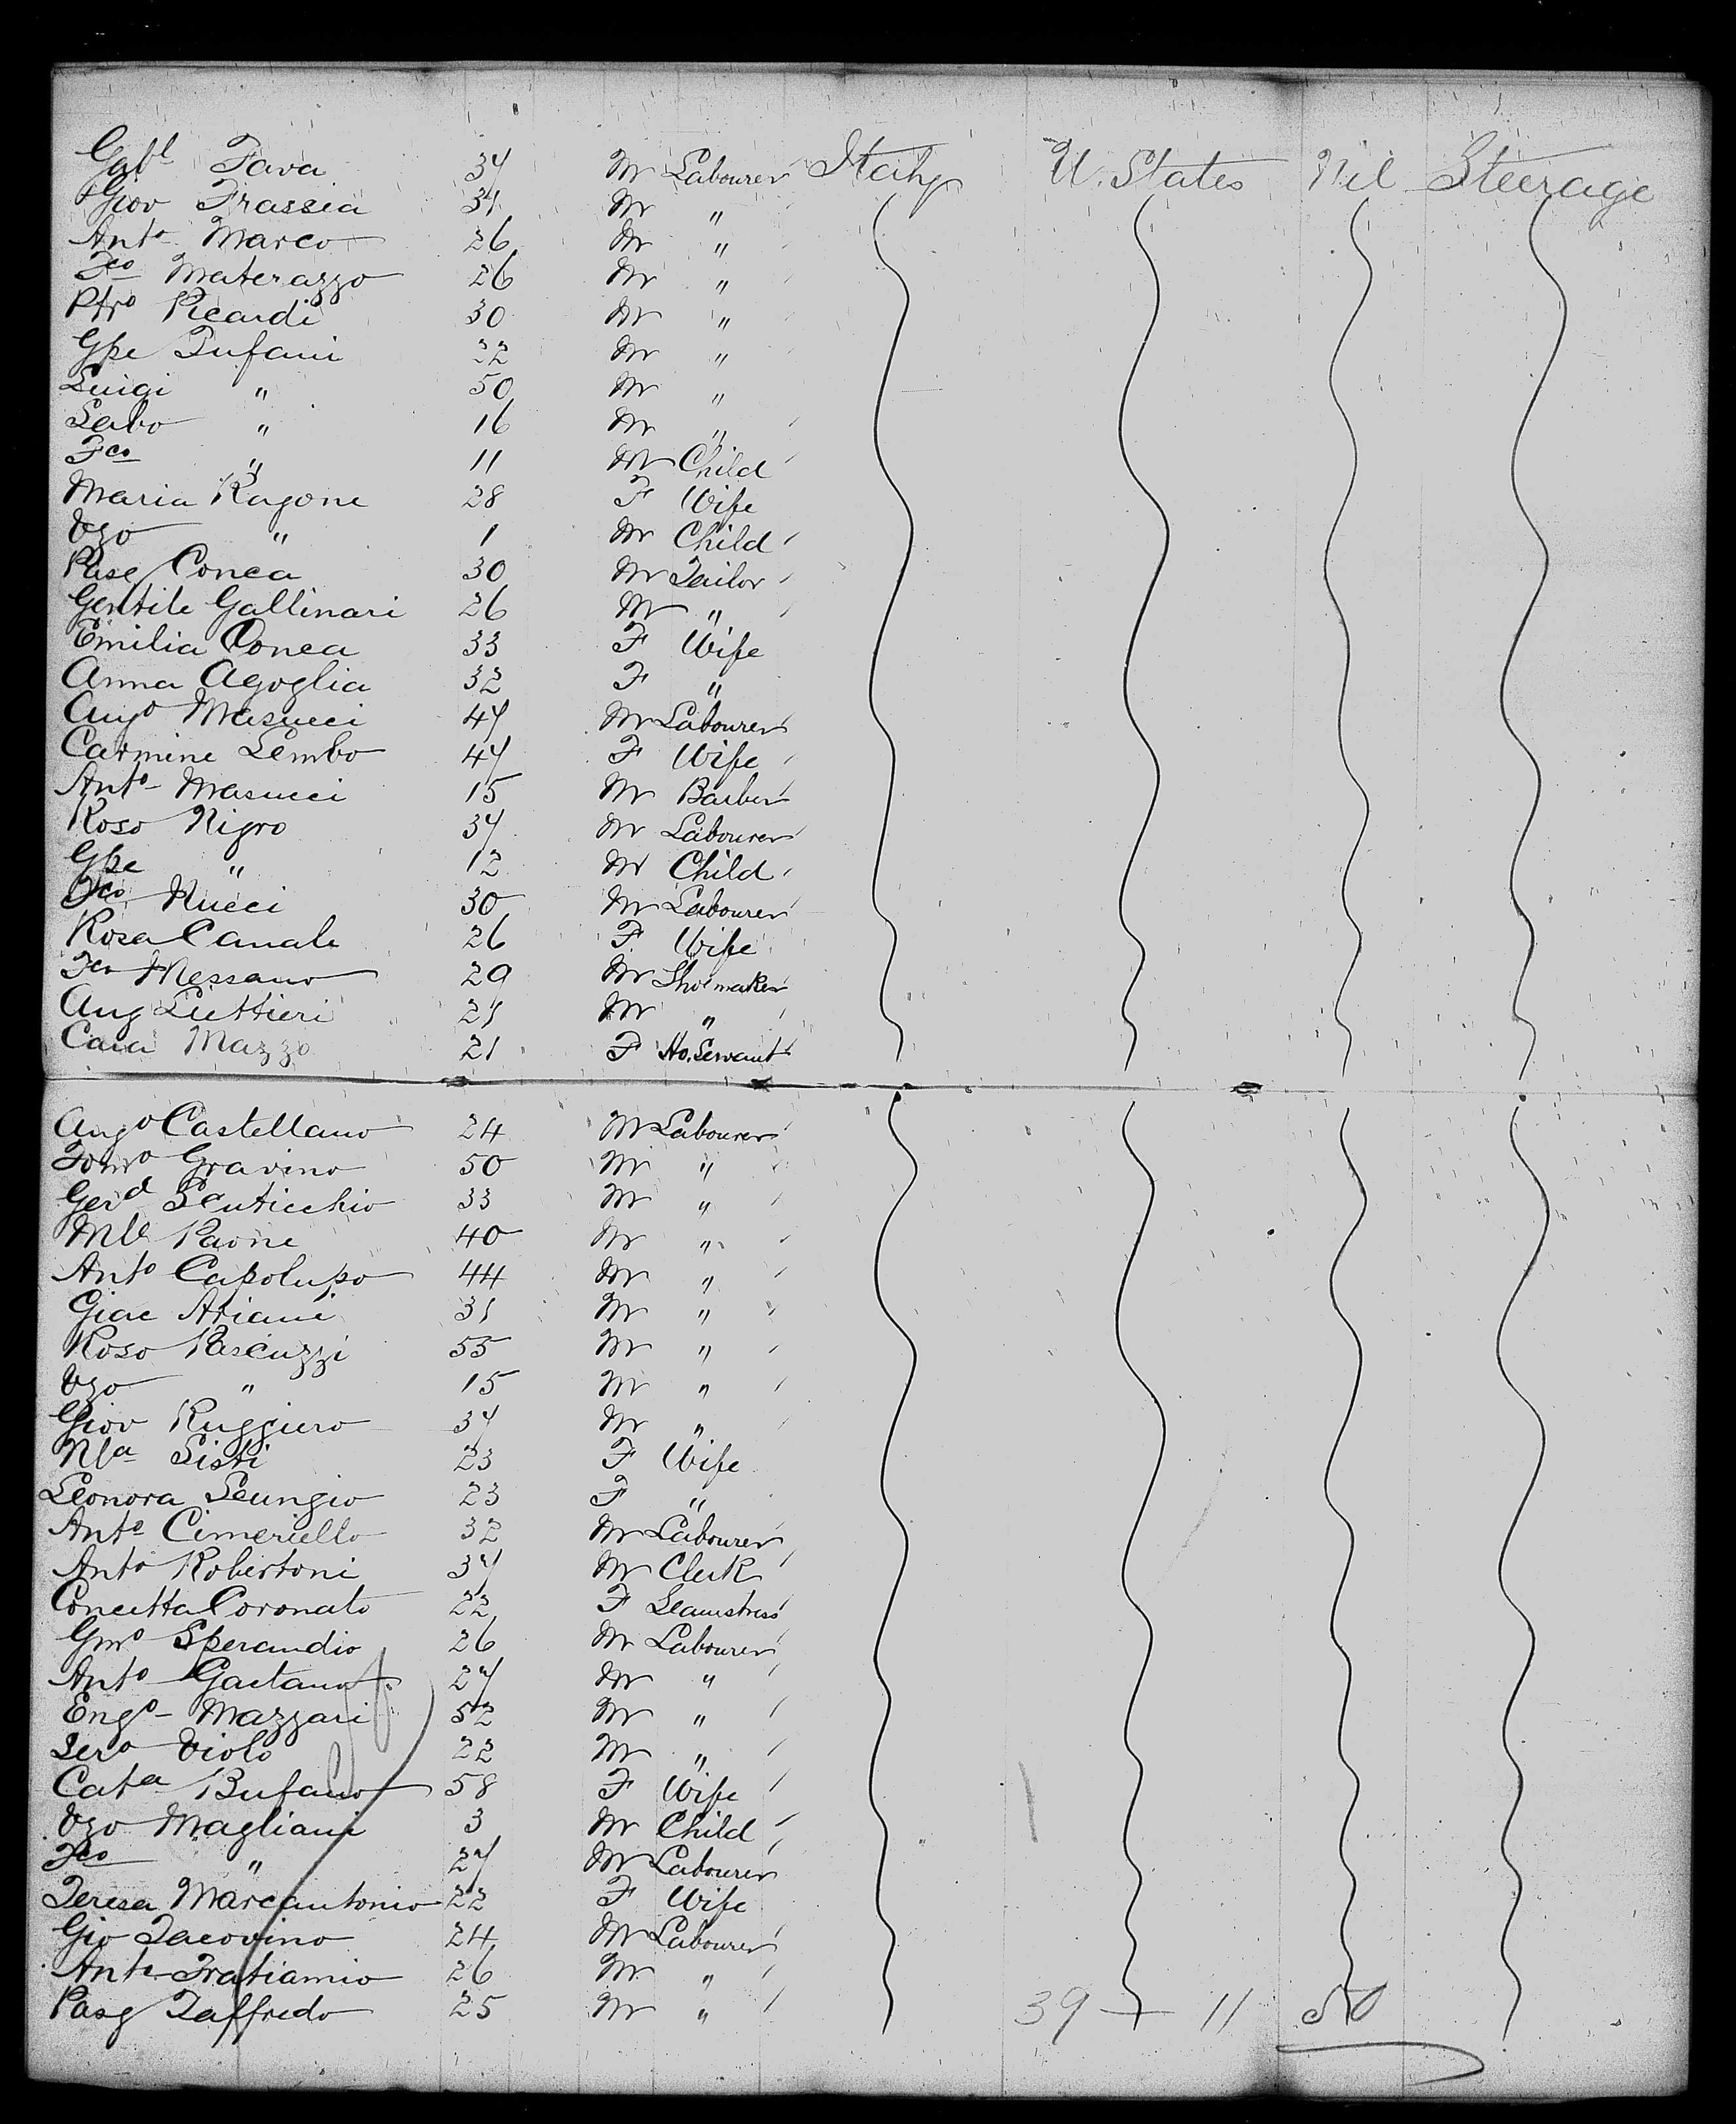 Gabl Fava 34 M Labourer Italy U. States Nil Steerage
Giov Frassia 34 M "
Anto Marco 26 M "
Fco Materazzo 26 M "
Ptro Picardi 30 M "
Gpe Tufani 22 M "
Luigi " 50 M "
Sabo " 16 M "
Fco " 11 M Child
Maria Ragone 28 F Wife
Vzo " 1 M Child
Pasq Conca 30 M Tailor
Gentile Gallinari 26 M "
Emilia Conca 33 F Wife
Anna Agoglia 32 F "
Ango Masucci 47 M Labourer
Carmine Lembo 47 F Wife
Anto Masucci 15 M Barber
Roso Nigro 37 M Labourer
Gpe " 12 M Child
Fco Nucci 30 M Labourer
Rosa Canale 26 F Wife
Fco Messano 29 M Shoemaker
Ang Liuttieri 27 M "
Cara Mazzo 21 F Ho. Servant
Ango Castellano 24 M Labourer
Tomo Gravino 50 M "
Gerd Senticchio 33 M "
Mle Paone 40 M "
Anto Capolupo 44 M "
Giac Ariani 31 M "
Roso Pascuzzi 55 M "
Vzo " 15 M "
Giov Ruggiero 37 M "
Nla Sisti 23 F Wife
Leonora Scungio 23 F "
Anto Cimeriello 32 M Labourer
Anto Robertoni 37 M Clerk
Concetta Coronato 22 F Seamstress
Gmo Sperandio 26 M Labourer
Anto Gaetano 27 M "
Engo Mazzari 52 M "
Sero Violo 22 M "
Cata Bufano 58 F Wife
Vzo Magliani 3 M Child
Fco " 27 M Labourer
Teresa Marcantonio 22 F Wife
Gio Iacovino 24 M Labourer
Anto Fratiamio 26 M "
Pasq Taffredo 25 M "
39 + 11 50